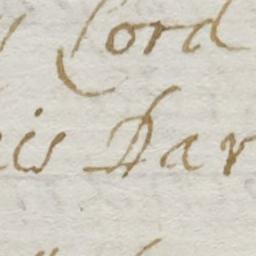 Lord
is Dar